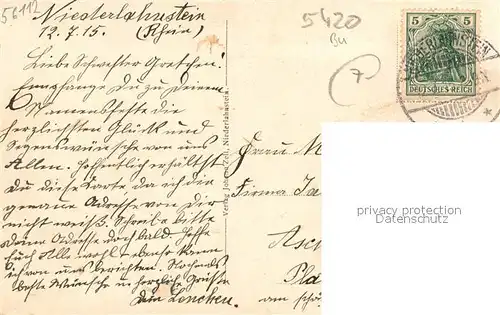 56112
5420
BU
7
Niederlahnstein
12.7.15. (Rhein)
Liebe Schwester Gretchen!
Empfange Du zu Deinem
Namensfeste die
herzlichsten Glück und
Segenswünsche von uns
Allen. Hoffentlich erhältst
Du diese Karte da ich die
genaue Adresse von Dir
nicht weiß. Schreibe bitte
Deine Adresse doch bald. Hoffe
Euch Alle wohl, ebenso kann
ich von uns berichten. Nochmals
beste Wünsche u herzliche Grüße
Dein Lenchen.
Verlag Johann Zell, Niederlahnstein.
5 5
DEUTSCHES REICH
Frau M
Firma Ja
Asc
Pla
am schö
privacy protection
Datenschutz